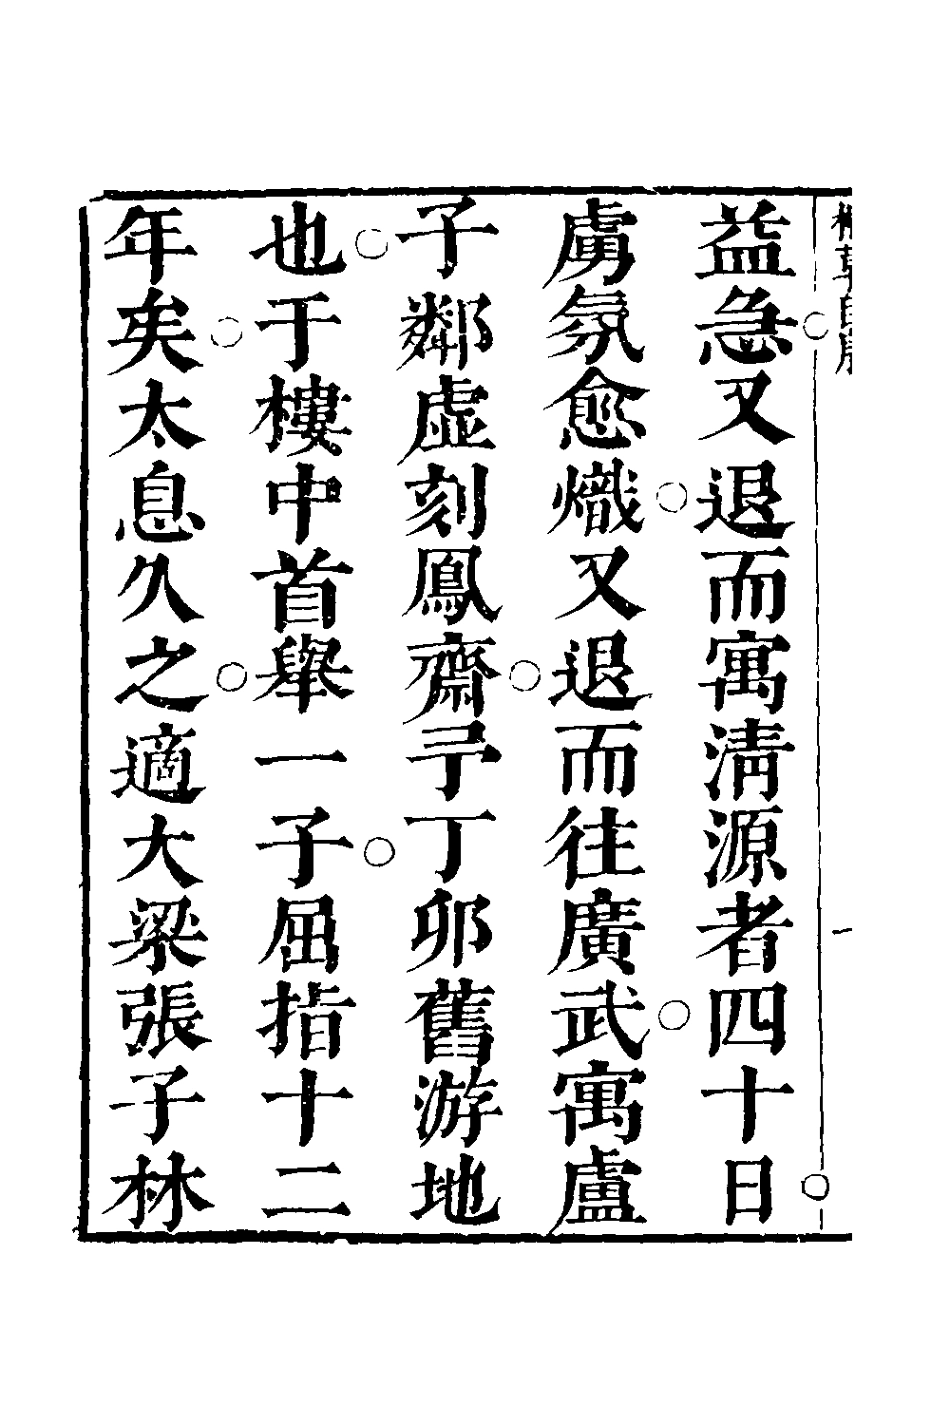 益急又退而寓淸源者四十日
虜氛愈熾又退而往廣武寓盧
子鄰虛刻鳳齋予丁卯舊游地
也于樓中首舉一子屈指十二
年矣太息久之適大梁張子林